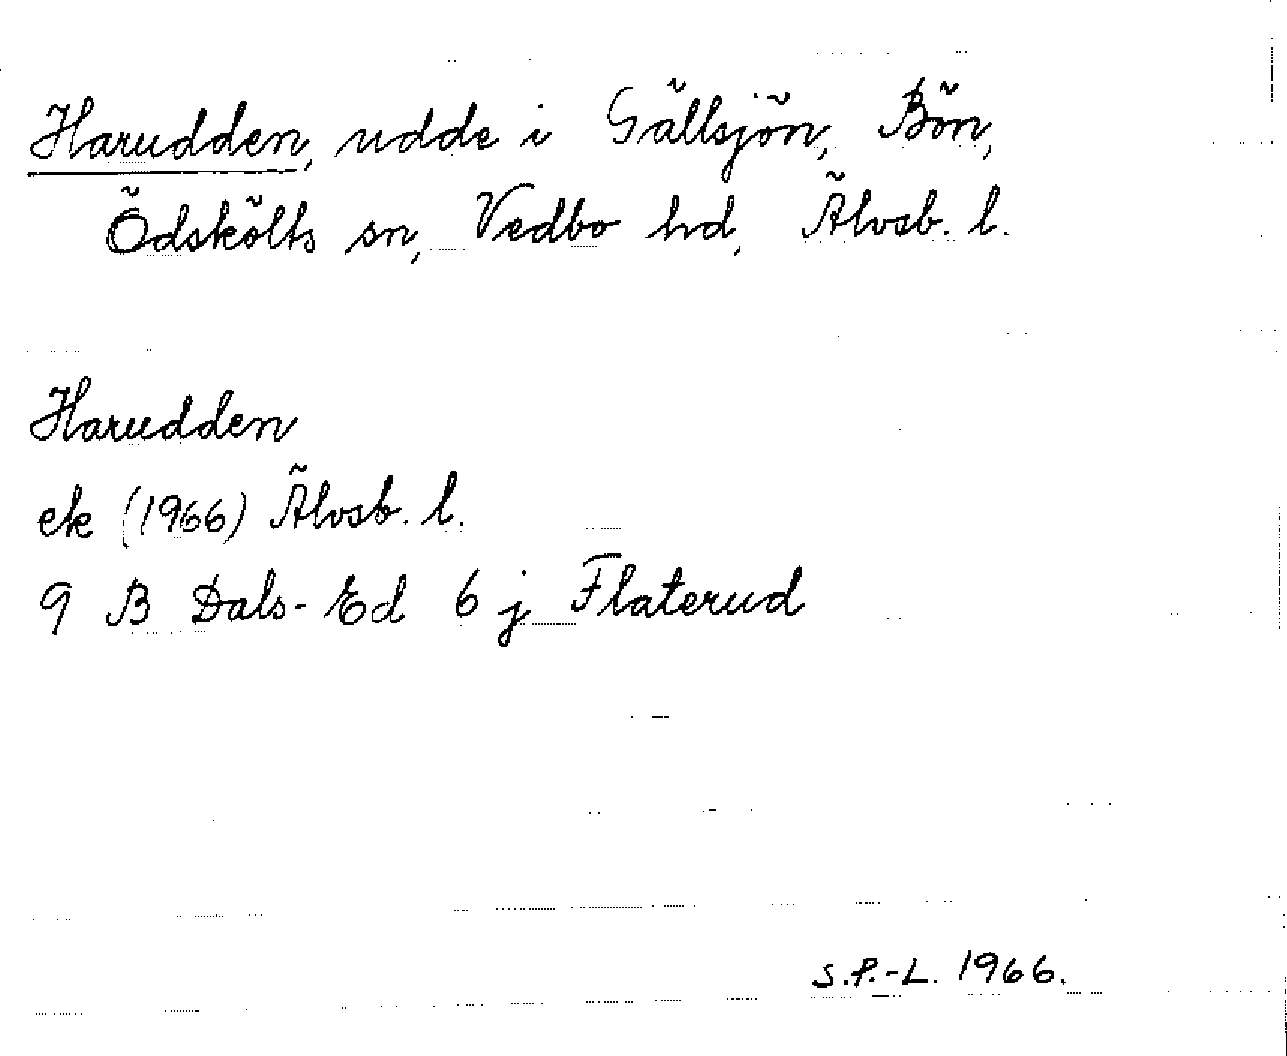 Harudden, udde i Gällsjön, Bön,
Ödskölts sn, Vedbo hd, Älvsb. l.
Harudden
ek (1966) Älvsb. l.
9 B Dals-Ed 6 j Flaterud
S.P.-L. 1966.